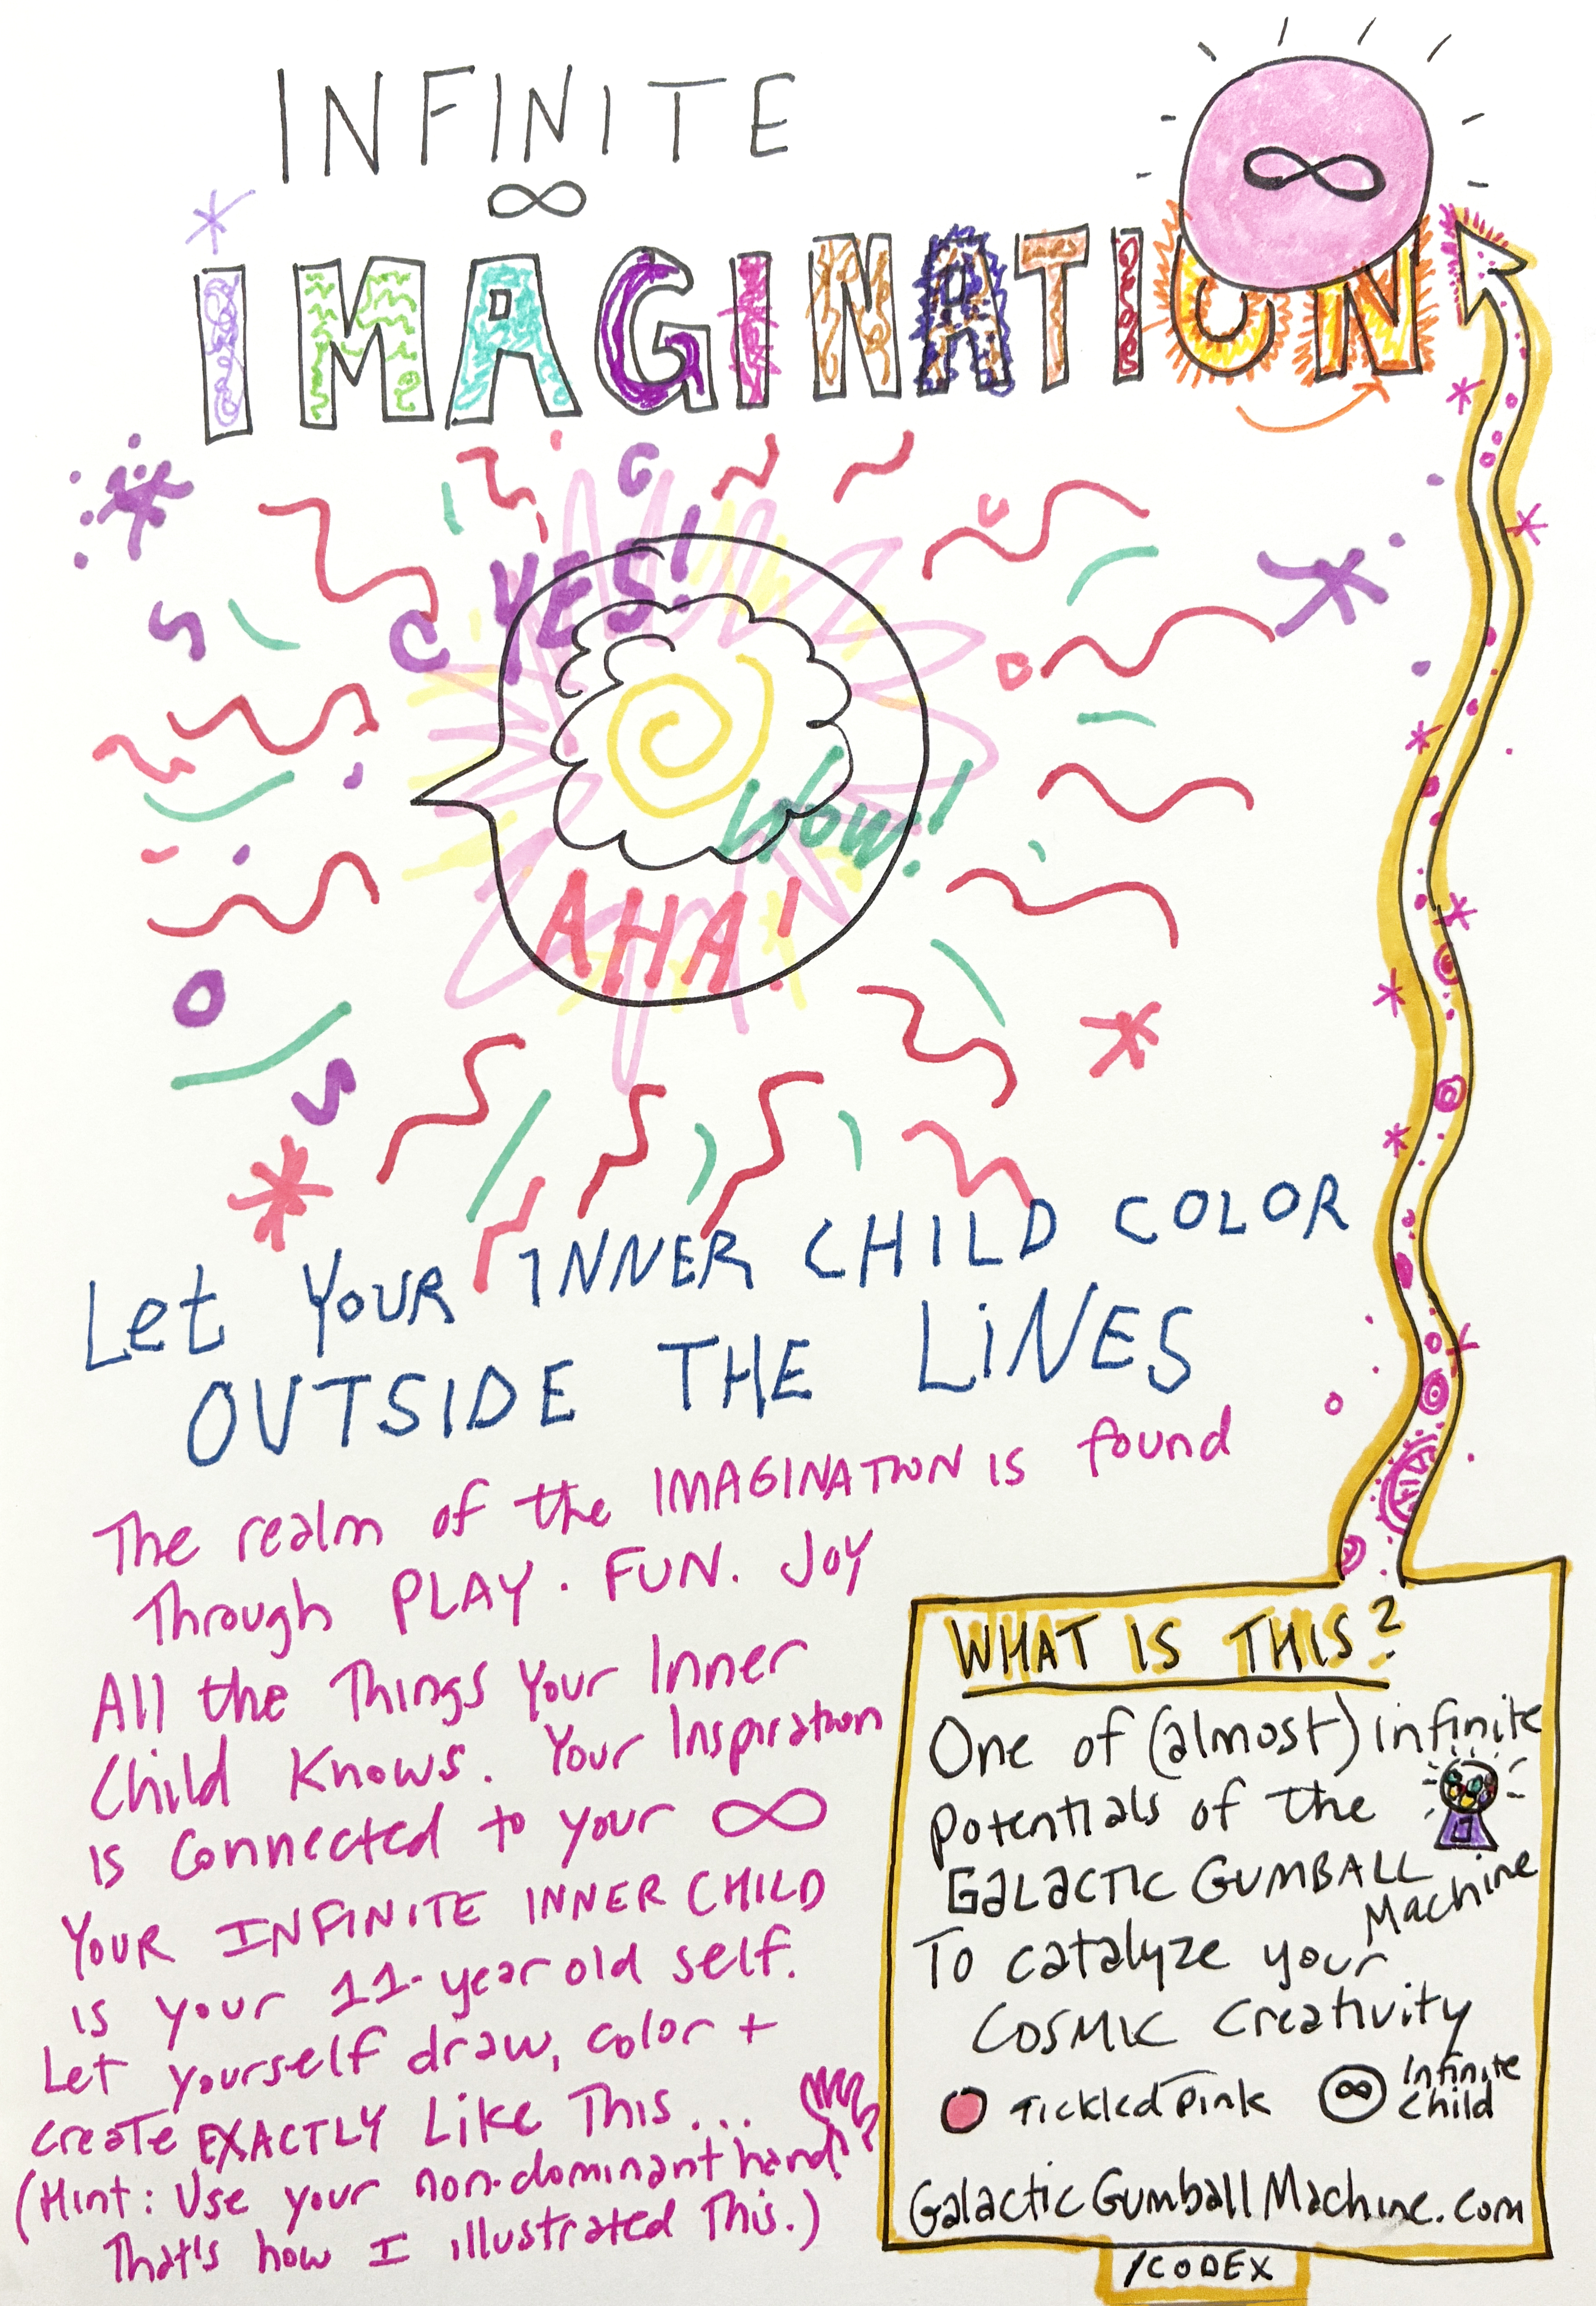 INFINITE
∞
∞
IMAGINATION
YES!
WOW!
AHA!
Let YOUR INNER CHILD COLOR
OUTSIDE THE LiNES
The realm of the IMAGINATION IS found
Through PLAY. FUN. JOY
All the Things Your Inner
Child Knows. Your Inspiration
is connected to your ∞
YOUR INFINITE INNER CHILD
is your 11-year old self.
Let yourself draw, color +
create EXACTLY Like This...
(Hint: Use your non-dominant hand!
That's how I illustrated This.)
WHAT IS THIS?
One of (almost) infinite
potentials of the
GALACTIC GUMBALL
Machine
To catalyze your
COSMIC Creativity
Tickled Pink
∞ Infinite
Child
GalacticGumballMachine.com
/CODEX